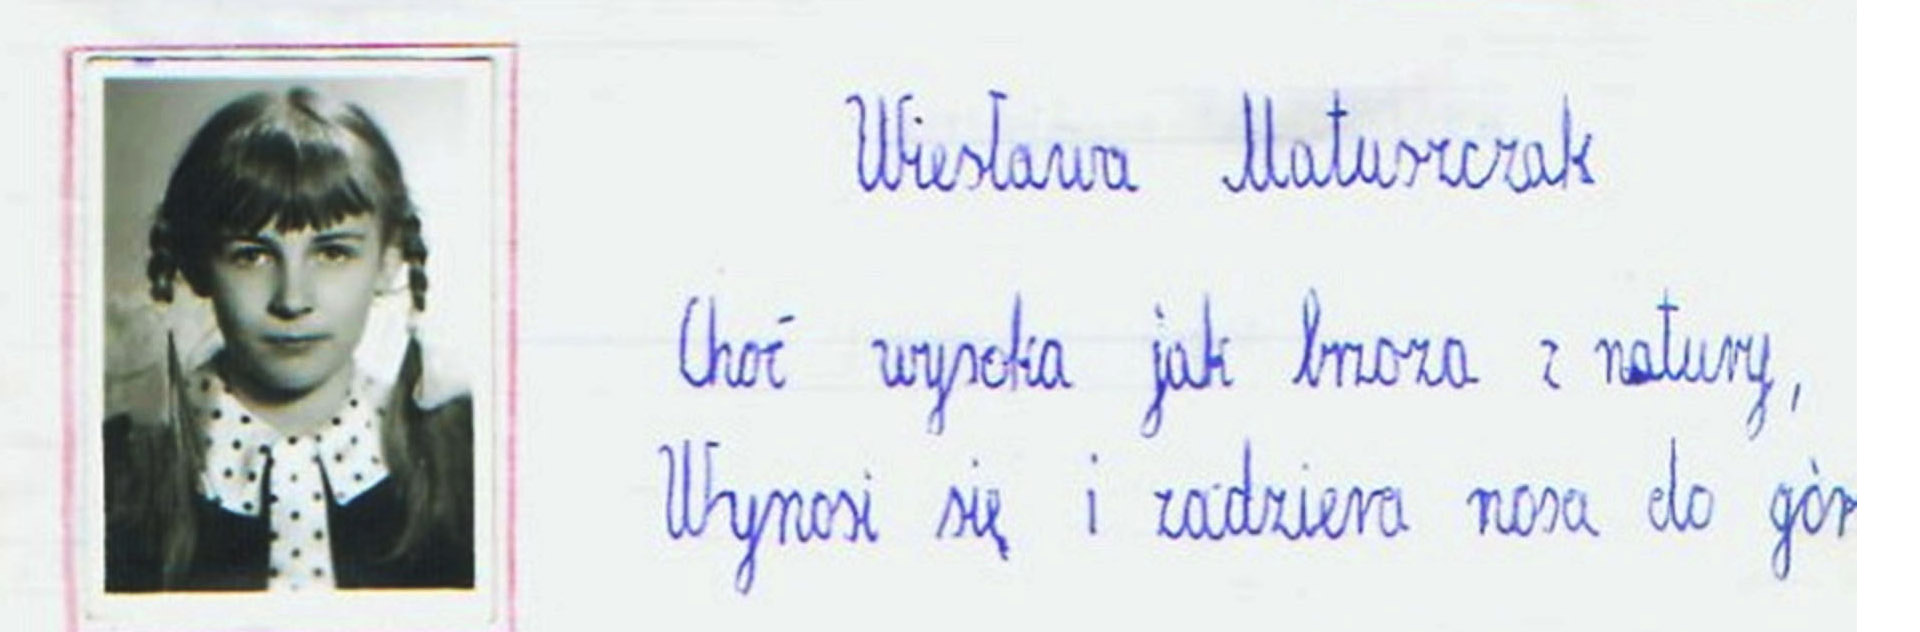 Wiesława Matuszczak
Choć wysoka jak brzoza z natury,
Wynosi się i zadziera nosa do gór